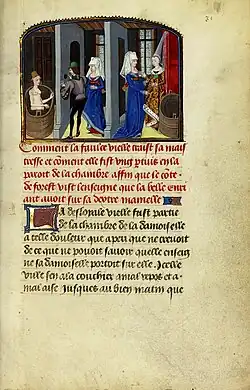 Comment la faulse vielle traist sa mais
tresse et cōment elle fist ung ptuis en la
paroit de la chambre affin que le cōte
de forest vist lenseigne que la belle euri
ant avoit sur sa dextre mamelle
La desloyale vielle fust partie
de la chambre de la damoiselle
a telle douleur que a peu que ne crevoit
de ce que ne pouoit savoir quelle enseig
ne sa damoiselle portoit sur elle. Icelle
vielle sen ala couchier a mal repos et a
mal aise jusques au bien matin que